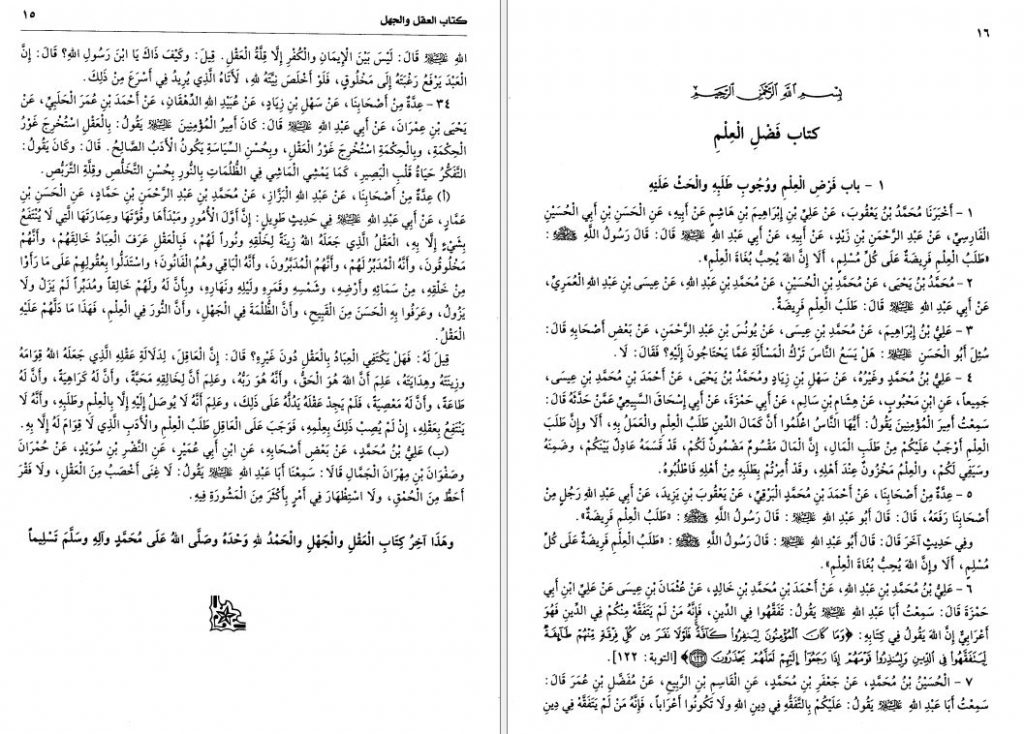 كتاب العقل والجهل
١٥
اللهِ عليه السلام قَالَ: لَيْسَ بَيْنَ الْإِيمَانِ وَالْكُفْرِ إِلَّا قِلَّةُ الْعَقْلِ. قِيلَ: وَكَيْفَ ذَاكَ يَا ابْنَ رَسُولِ اللهِ؟ قَالَ: إِنَّ
الْعَبْدَ يَرْفَعُ رَغْبَتَهُ إِلَى مَخْلُوقٍ، فَلَوْ أَخْلَصَ نِيَّتَهُ لِلهِ، لَأَتَاهُ الَّذِي يُرِيدُ فِي أَسْرَعَ مِنْ ذَلِكَ.
٣٤ - عِدَّةٌ مِنْ أَصْحَابِنَا، عَنْ سَهْلِ بْنِ زِيَادٍ، عَنْ عُبَيْدِ اللهِ الدِّهْقَانِ، عَنْ أَحْمَدَ بْنِ عُمَرَ الْحَلَبِيِّ، عَنْ
يَحْيَى بْنِ عِمْرَانَ، عَنْ أَبِي عَبْدِ اللهِ عليه السلام قَالَ: كَانَ أَمِيرُ الْمُؤْمِنِينَ عليه السلام يَقُولُ: بِالْعَقْلِ اسْتُخْرِجَ غَوْرُ
الْحِكْمَةِ، وَبِالْحِكْمَةِ اسْتُخْرِجَ غَوْرُ الْعَقْلِ، وَبِحُسْنِ السِّيَاسَةِ يَكُونُ الْأَدَبُ الصَّالِحُ. قَالَ: وَكَانَ يَقُولُ:
التَّفَكُّرُ حَيَاةُ قَلْبِ الْبَصِيرِ، كَمَا يَمْشِي الْمَاشِي فِي الظُّلُمَاتِ بِالنُّورِ بِحُسْنِ التَّخَلُّصِ وَقِلَّةِ التَّرَبُّصِ.
(أ) عِدَّةٌ مِنْ أَصْحَابِنَا، عَنْ عَبْدِ اللهِ الْبَزَّازِ، عَنْ مُحَمَّدِ بْنِ عَبْدِ الرَّحْمَنِ بْنِ حَمَّادٍ، عَنِ الْحَسَنِ بْنِ
عَمَّارٍ، عَنْ أَبِي عَبْدِ اللهِ عليه السلام فِي حَدِيثٍ طَوِيلٍ: إِنَّ أَوَّلَ الْأُمُورِ وَمَبْدَأَهَا وَقُوَّتَهَا وَعِمَارَتَهَا الَّتِي لَا يُنْتَفَعُ
بِشَيْءٍ إِلَّا بِهِ، الْعَقْلُ الَّذِي جَعَلَهُ اللهُ زِينَةً لِخَلْقِهِ وَنُوراً لَهُمْ، فَبِالْعَقْلِ عَرَفَ الْعِبَادُ خَالِقَهُمْ، وَأَنَّهُمْ
مَخْلُوقُونَ، وَأَنَّهُ الْمُدَبِّرُ لَهُمْ، وَأَنَّهُمُ الْمُدَبَّرُونَ، وَأَنَّهُ الْبَاقِي وَهُمُ الْفَانُونَ؛ وَاسْتَدَلُّوا بِعُقُولِهِمْ عَلَى مَا رَأَوْا
مِنْ خَلْقِهِ، مِنْ سَمَائِهِ وَأَرْضِهِ، وَشَمْسِهِ وَقَمَرِهِ وَلَيْلِهِ وَنَهَارِهِ، وَبِأَنَّ لَهُ وَلَهُمْ خَالِقاً وَمُدَبِّراً لَمْ يَزَلْ وَلَا
يَزُولُ، وَعَرَفُوا بِهِ الْحَسَنَ مِنَ الْقَبِيحِ، وَأَنَّ الظُّلْمَةَ فِي الْجَهْلِ، وَأَنَّ النُّورَ فِي الْعِلْمِ، فَهَذَا مَا دَلَّهُمْ عَلَيْهِ
الْعَقْلُ.
قِيلَ لَهُ: فَهَلْ يَكْتَفِي الْعِبَادُ بِالْعَقْلِ دُونَ غَيْرِهِ؟ قَالَ: إِنَّ الْعَاقِلَ، لِدَلَالَةِ عَقْلِهِ الَّذِي جَعَلَهُ اللهُ قِوَامَهُ
وَزِينَتَهُ وَهِدَايَتَهُ، عَلِمَ أَنَّ اللهَ هُوَ الْحَقُّ، وَأَنَّهُ هُوَ رَبُّهُ، وَعَلِمَ أَنَّ لِخَالِقِهِ مَحَبَّةً، وَأَنَّ لَهُ كَرَاهِيَةً، وَأَنَّ لَهُ
طَاعَةً، وَأَنَّ لَهُ مَعْصِيَةً، فَلَمْ يَجِدْ عَقْلَهُ يَدُلُّهُ عَلَى ذَلِكَ، وَعَلِمَ أَنَّهُ لَا يُوصَلُ إِلَيْهِ إِلَّا بِالْعِلْمِ وَطَلَبِهِ، وَأَنَّهُ لَا
يَنْتَفِعُ بِعَقْلِهِ، إِنْ لَمْ يُصِبْ ذَلِكَ بِعِلْمِهِ، فَوَجَبَ عَلَى الْعَاقِلِ طَلَبُ الْعِلْمِ وَالْأَدَبِ الَّذِي لَا قِوَامَ لَهُ إِلَّا بِهِ.
(ب) عَلِيُّ بْنُ مُحَمَّدٍ، عَنْ بَعْضِ أَصْحَابِهِ، عَنِ ابْنِ أَبِي عُمَيْرٍ، عَنِ النَّضْرِ بْنِ سُوَيْدٍ، عَنْ حُمْرَانَ
وَصَفْوَانَ بْنِ مِهْرَانَ الْجَمَّالِ قَالَا: سَمِعْنَا أَبَا عَبْدِ اللهِ عليه السلام يَقُولُ: لَا غِنَى أَخْصَبُ مِنَ الْعَقْلِ، وَلَا فَقْرَ
أَحَطُّ مِنَ الْحُمْقِ، وَلَا اسْتِظْهَارَ فِي أَمْرٍ بِأَكْثَرَ مِنَ الْمَشُورَةِ فِيهِ.
وَهَذَا آخِرُ كِتَابِ الْعَقْلِ وَالْجَهْلِ وَالْحَمْدُ لِلهِ وَحْدَهُ وَصَلَّى اللهُ عَلَى مُحَمَّدٍ وَآلِهِ وَسَلَّمَ تَسْلِيماً
١٦
بِسْمِ اللَّهِ الرَّحْمَنِ الرَّحِيمِ
كتاب فَضْلِ الْعِلْمِ
١ - باب فَرْضِ الْعِلْمِ وَوُجُوبِ طَلَبِهِ وَالْحَثِّ عَلَيْهِ
١ - أَخْبَرَنَا مُحَمَّدُ بْنُ يَعْقُوبَ، عَنْ عَلِيِّ بْنِ إِبْرَاهِيمَ بْنِ هَاشِمٍ عَنْ أَبِيهِ، عَنِ الْحَسَنِ بْنِ أَبِي الْحُسَيْنِ
الْفَارِسِيِّ، عَنْ عَبْدِ الرَّحْمَنِ بْنِ زَيْدٍ، عَنْ أَبِيهِ، عَنْ أَبِي عَبْدِ اللهِ عليه السلام قَالَ: قَالَ رَسُولُ اللَّهِ ﷺ:
«طَلَبُ الْعِلْمِ فَرِيضَةٌ عَلَى كُلِّ مُسْلِمٍ، أَلَا إِنَّ اللهَ يُحِبُّ بُغَاةَ الْعِلْمِ».
٢ - مُحَمَّدُ بْنُ يَحْيَى، عَنْ مُحَمَّدِ بْنِ الْحُسَيْنِ، عَنْ مُحَمَّدِ بْنِ عَبْدِ اللهِ، عَنْ عِيسَى بْنِ عَبْدِ اللهِ الْعُمَرِيِّ،
عَنْ أَبِي عَبْدِ اللهِ عليه السلام قَالَ: طَلَبُ الْعِلْمِ فَرِيضَةٌ.
٣ - عَلِيُّ بْنُ إِبْرَاهِيمَ، عَنْ مُحَمَّدِ بْنِ عِيسَى، عَنْ يُونُسَ بْنِ عَبْدِ الرَّحْمَنِ، عَنْ بَعْضِ أَصْحَابِهِ قَالَ:
سُئِلَ أَبُو الْحَسَنِ عليه السلام: هَلْ يَسَعُ النَّاسَ تَرْكُ الْمَسْأَلَةِ عَمَّا يَحْتَاجُونَ إِلَيْهِ؟ فَقَالَ: لَا.
٤ - عَلِيُّ بْنُ مُحَمَّدٍ وَغَيْرُهُ، عَنْ سَهْلِ بْنِ زِيَادٍ وَمُحَمَّدُ بْنُ يَحْيَى، عَنْ أَحْمَدَ بْنِ مُحَمَّدِ بْنِ عِيسَى،
جَمِيعاً، عَنِ ابْنِ مَحْبُوبٍ، عَنْ هِشَامِ بْنِ سَالِمٍ، عَنْ أَبِي حَمْزَةَ، عَنْ أَبِي إِسْحَاقَ السَّبِيعِيِّ عَمَّنْ حَدَّثَهُ قَالَ:
سَمِعْتُ أَمِيرَ الْمُؤْمِنِينَ يَقُولُ: أَيُّهَا النَّاسُ اعْلَمُوا أَنَّ كَمَالَ الدِّينِ طَلَبُ الْعِلْمِ وَالْعَمَلُ بِهِ، أَلَا وَإِنَّ طَلَبَ
الْعِلْمِ أَوْجَبُ عَلَيْكُمْ مِنْ طَلَبِ الْمَالِ، إِنَّ الْمَالَ مَقْسُومٌ مَضْمُونٌ لَكُمْ، قَدْ قَسَمَهُ عَادِلٌ بَيْنَكُمْ، وَضَمِنَهُ
وَسَيَفِي لَكُمْ، وَالْعِلْمُ مَخْزُونٌ عِنْدَ أَهْلِهِ، وَقَدْ أُمِرْتُمْ بِطَلَبِهِ مِنْ أَهْلِهِ فَاطْلُبُوهُ.
٥ - عِدَّةٌ مِنْ أَصْحَابِنَا، عَنْ أَحْمَدَ بْنِ مُحَمَّدٍ الْبَرْقِيِّ، عَنْ يَعْقُوبَ بْنِ يَزِيدَ، عَنْ أَبِي عَبْدِ اللهِ رَجُلٍ مِنْ
أَصْحَابِنَا رَفَعَهُ، قَالَ: قَالَ أَبُو عَبْدِ اللهِ عليه السلام: قَالَ رَسُولُ اللَّهِ ﷺ: «طَلَبُ الْعِلْمِ فَرِيضَةٌ».
وَفِي حَدِيثٍ آخَرَ قَالَ: قَالَ أَبُو عَبْدِ اللهِ عليه السلام: قَالَ رَسُولُ اللَّهِ ﷺ: «طَلَبُ الْعِلْمِ فَرِيضَةٌ عَلَى كُلِّ
مُسْلِمٍ، أَلَا وَإِنَّ اللهَ يُحِبُّ بُغَاةَ الْعِلْمِ».
٦ - عَلِيُّ بْنُ مُحَمَّدِ بْنِ عَبْدِ اللهِ، عَنْ أَحْمَدَ بْنِ مُحَمَّدِ بْنِ خَالِدٍ، عَنْ عُثْمَانَ بْنِ عِيسَى عَنْ عَلِيِّ ابْنِ أَبِي
حَمْزَةَ قَالَ: سَمِعْتُ أَبَا عَبْدِ اللهِ عليه السلام يَقُولُ: تَفَقَّهُوا فِي الدِّينِ، فَإِنَّهُ مَنْ لَمْ يَتَفَقَّهْ مِنْكُمْ فِي الدِّينِ فَهُوَ
أَعْرَابِيٌّ إِنَّ اللهَ يَقُولُ فِي كِتَابِهِ: ﴿وَمَا كَانَ الْمُؤْمِنُونَ لِيَنفِرُوا كَافَّةً فَلَوْلَا نَفَرَ مِن كُلِّ فِرْقَةٍ مِّنْهُمْ طَائِفَةٌ
لِّيَتَفَقَّهُوا فِي الدِّينِ وَلِيُنذِرُوا قَوْمَهُمْ إِذَا رَجَعُوا إِلَيْهِمْ لَعَلَّهُمْ يَحْذَرُونَ ١٢٢﴾ [التوبة: ١٢٢].
٧ - الْحُسَيْنُ بْنُ مُحَمَّدٍ، عَنْ جَعْفَرِ بْنِ مُحَمَّدٍ، عَنِ الْقَاسِمِ بْنِ الرَّبِيعِ، عَنْ مُفَضَّلِ بْنِ عُمَرَ قَالَ:
سَمِعْتُ أَبَا عَبْدِ اللهِ عليه السلام يَقُولُ: عَلَيْكُمْ بِالتَّفَقُّهِ فِي دِينِ اللهِ وَلَا تَكُونُوا أَعْرَاباً، فَإِنَّهُ مَنْ لَمْ يَتَفَقَّهْ فِي دِينِ